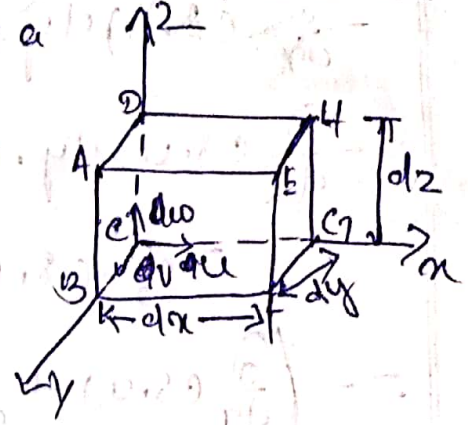 a
z
D
H
A
E
dz
C
dw
G
x
dv du
B
dy
F
dx
y